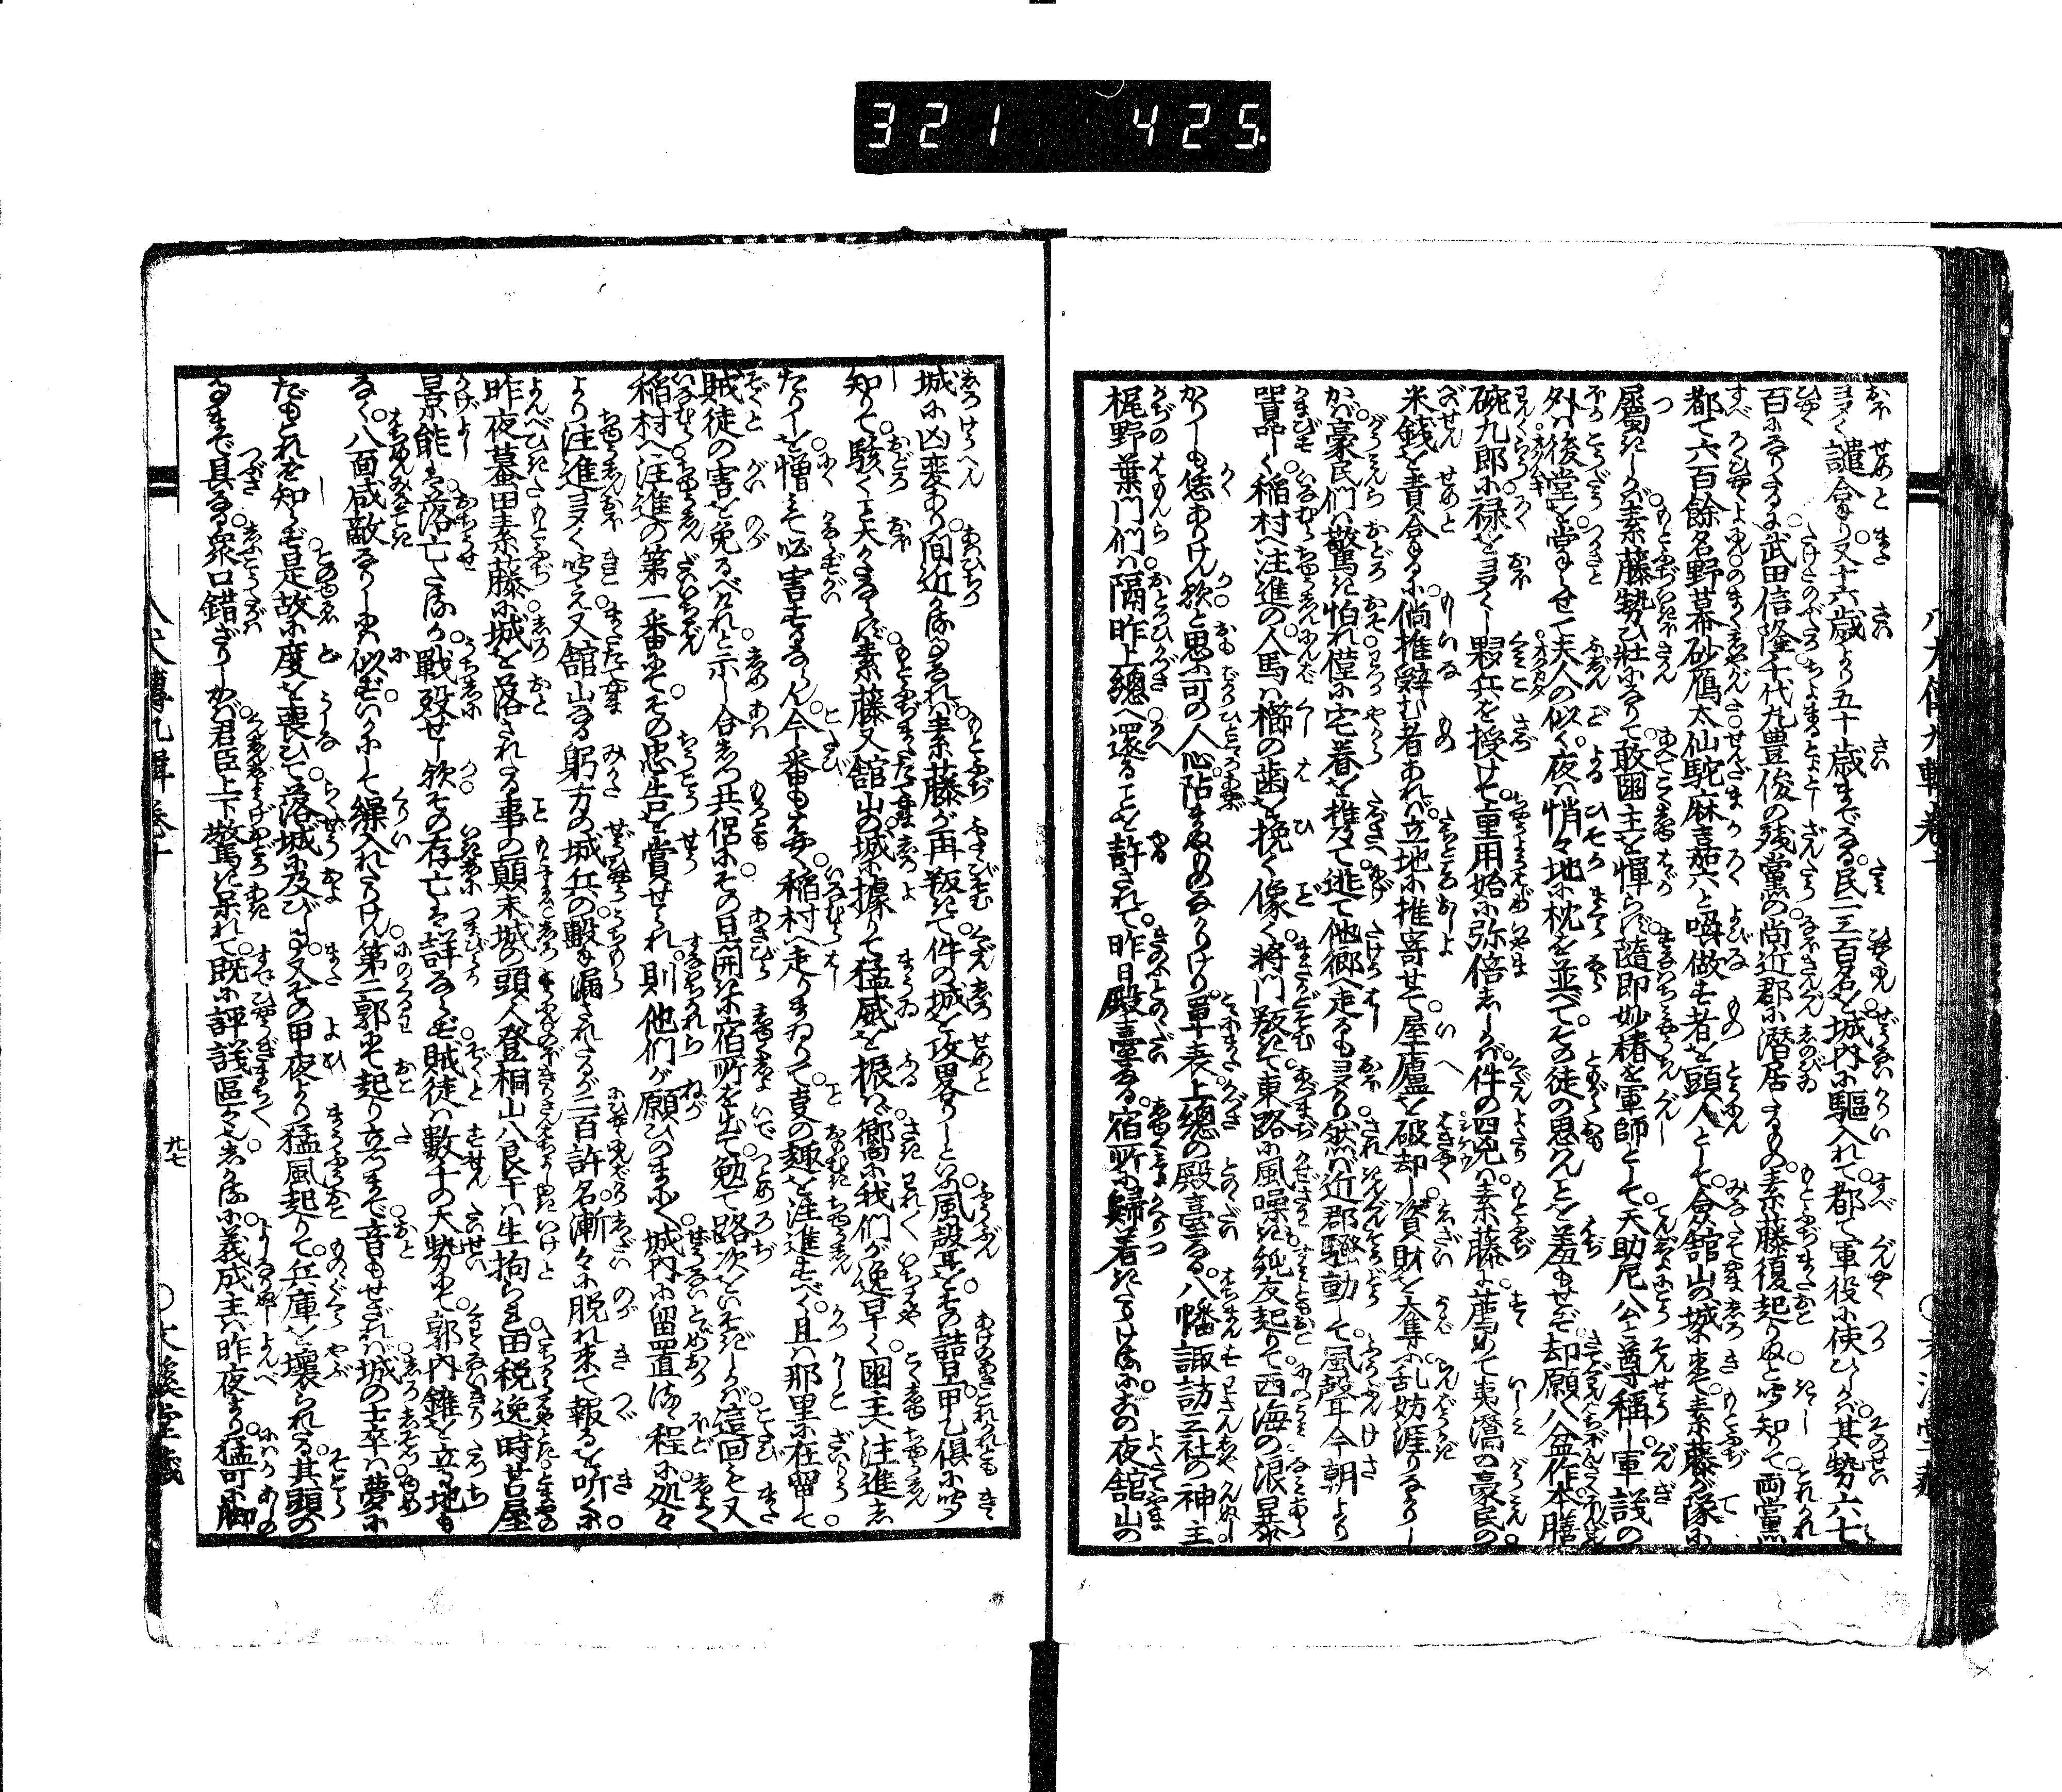 321 425
夛く譴合せり又十六歳より五十歳までなる民二三百名を城内に駆入れて都て軍役に使ひしかば其勢六七
百になりたるに武田信隆千代丸豊俊の残黨の尚近郡に潜居たるもの素藤復起りぬと聞知りて両黨
都て六百餘名野幕沙雁太仙駝麻嘉六と喚做す者を頭人として舘山の城に来て素藤が隊に
屬きしかば素藤勢ひ壮になりて敢国主を憚らず隨即妙椿を軍師として天助尼公と尊稱し軍議の
外は後堂を掌らせて夫人の似く夜は悄々地に枕を並べてその徒の思はんことを羞もせず却願八盆作本膳
碗九郎に禄を夛くし夥兵を授けて重用始に弥倍しかば件の四兇は素藤に薦めて夷灊の豪民の
米銭を責合するに倘推辞む者あれば立地に推寄せて屋廬を破却し資財を奪ふ乱妨涯りなかりし
かば豪民們は驚き怕れ僅に宅眷を携て逃て他郷へ走るも夛かり然ば近郡騒動して風聲今朝より
囂しく稲村へ注進の人馬は櫛の歯を挽く像く将門叛きて東路に風噪ぎ純友起りて西海の浪暴
かりしも恁ありけん歟と思ふ可の人心陷まぬものなかりけり單表上總の殿臺なる八幡諏訪三社の神主
梶野葉門們は隔昨上總へ還ることを許されて昨日殿臺なる宿所に歸着きたりけるにその夜舘山の
城に凶変あり間近ければ素藤が再叛きて件の城を攻畧りしといふ風聲をその詰旦甲乙倶に聞
知りて駭くこと大かたならず素藤又舘山の城に據りて猛威を振ふ郷に我們が逸早く国主へ注進し
たりしを憎みて必害するならん今番もはやく稲村へ走りまゐりて夏の趣を注進すべく且は那里に在留して
賊徒の害を免るべけれと示し合しつ共侶にその旦開に宿所を出て勉て路次をいそぎしかば這回も又
稲村へ注進の第一番にてその忠告を賞せられ則他們が願ひのまにまに城内に留置るる程に処々
より注進夛く聞え又舘山なる躬方の城兵の毄漏されたるが二百許名漸々に脱れ来て報るを听くに
昨夜蟇田素藤に城を落されたる事の顛末城の頭人登桐山八良干は生拘られ田税逸時苫屋
景能は落亡たるか戰歿せし歟その存亡は詳ならず賊徒は數千の大勢にて郭内錐を立る地も
なく八面咸敵なりしに似ずいかにして繰入れたりけん第二郭にて起り立つまで音もせざれば城の士卒は夢に
だもこれを知らず是故に度を喪ひて落城に及びし又その甲夜より猛風起りて兵庫を壊られたる其頭の
ゐまで具なる衆口錯ざりしかば君臣上下驚き呆れて既に評議區々なりしかるに義成主は昨夜より猛可に脚
八犬傳九輯巻十
九七